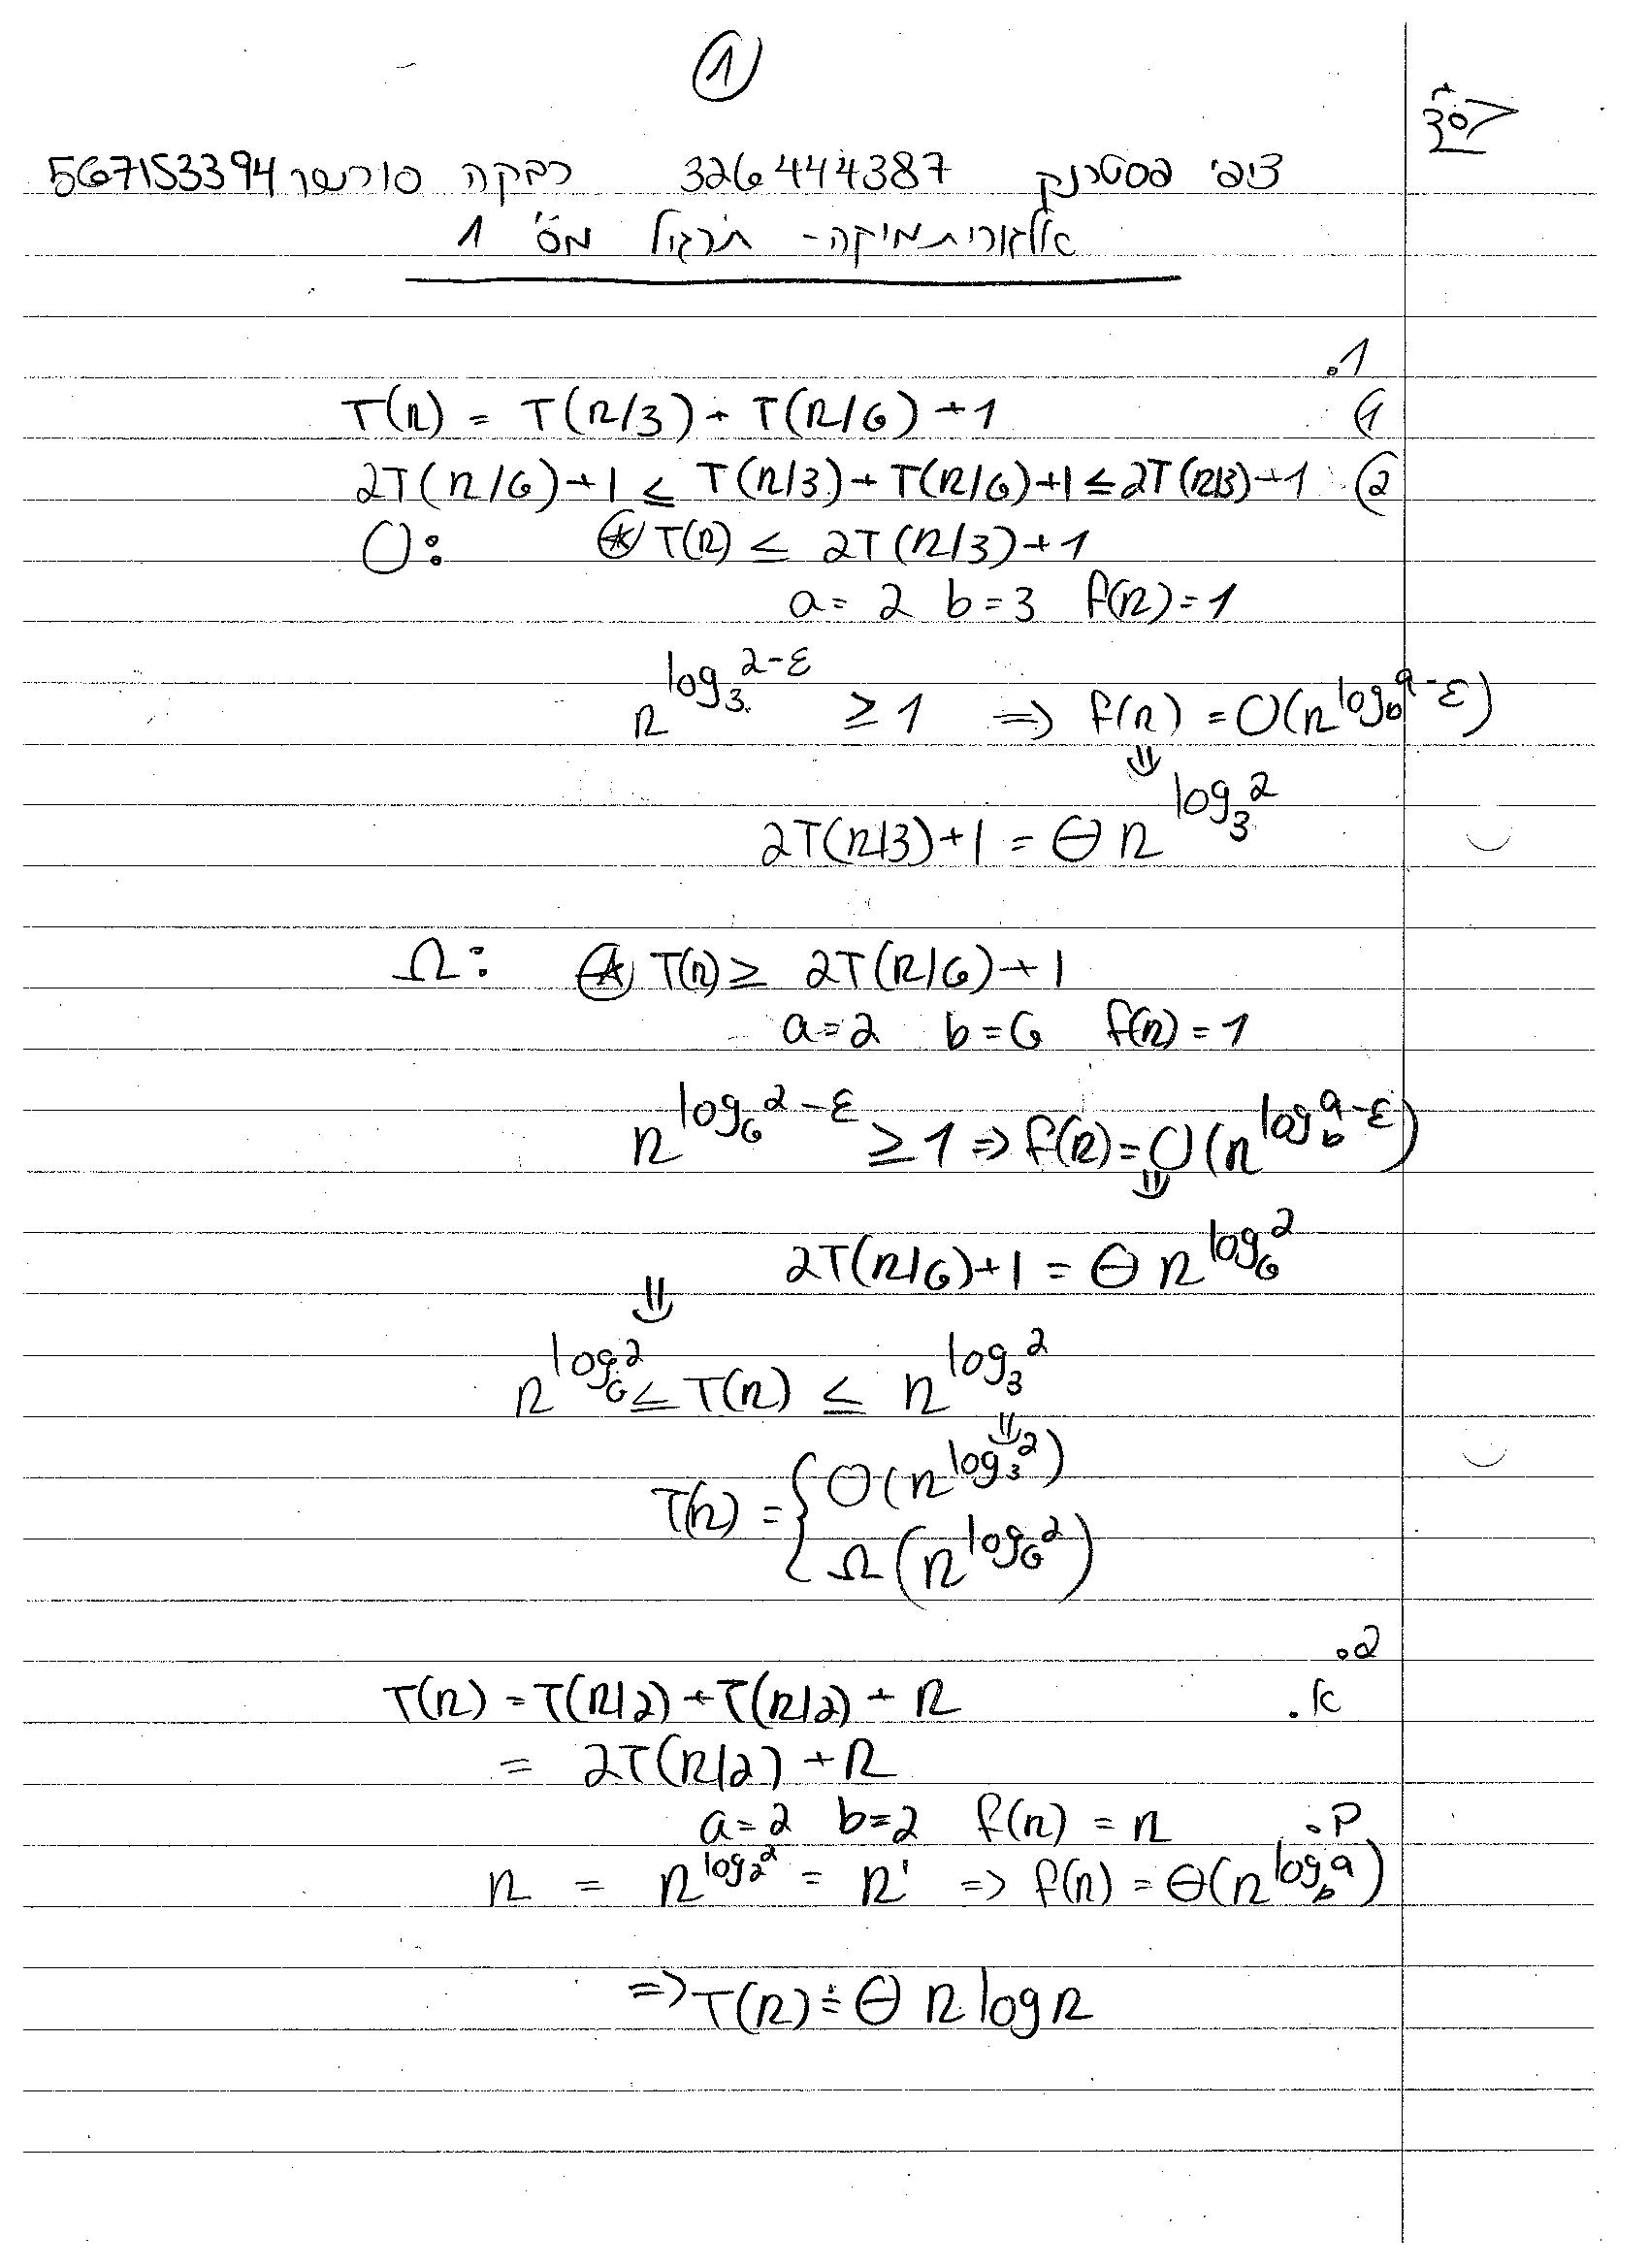 ①
בס"ד
ציפי פסטרנק 326444387 רבקה סורשר 567153394
אלגוריתמיקה - תרגיל מס' 1
.1
(1 T(n) = T(n/3) + T(n/6) + 1
(2 2T(n/6)+1 ≤ T(n/3)+T(n/6)+1 ≤ 2T(n/3)+1
O: ⊛ T(n) ≤ 2T(n/3)+1
a = 2 b = 3 f(n) = 1
n^(log_3 2-ε) ≥ 1 ⇒ f(n) = O(n^(log_b a-ε))
⇓
2T(n/3)+1 = Θ n^(log_3 2)
Ω: ⊛ T(n) ≥ 2T(n/6)+1
a=2 b=6 f(n)=1
n^(log_6 2-ε) ≥ 1 ⇒ f(n) = O(n^(log_b a-ε))
⇓
2T(n/6)+1 = Θ n^(log_6 2)
⇓
n^(log_6 2) ≤ T(n) ≤ n^(log_3 2)
⇓
T(n) = { O(n^(log_3 2))
Ω(n^(log_6 2))
.2
א. T(n) = T(n/2) + T(n/2) + n
= 2T(n/2) + n
ב. a=2 b=2 f(n) = n
n = n^(log_2 2) = n^1 ⇒ f(n) = Θ(n^(log_b a))
⇒ T(n) = Θ n log n